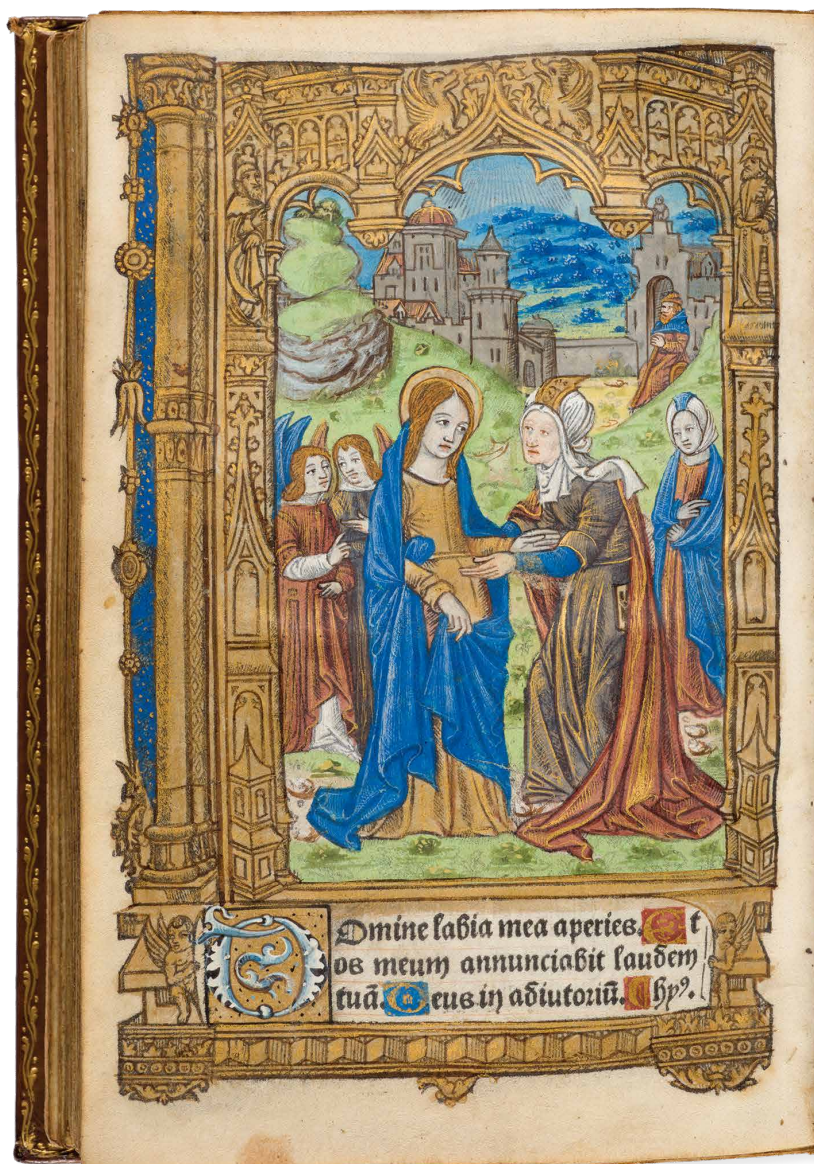 Domine labia mea aperies. Et
os meum annunciabit laudem
tuā. Deus in adiutoriū. Ihꝰ.